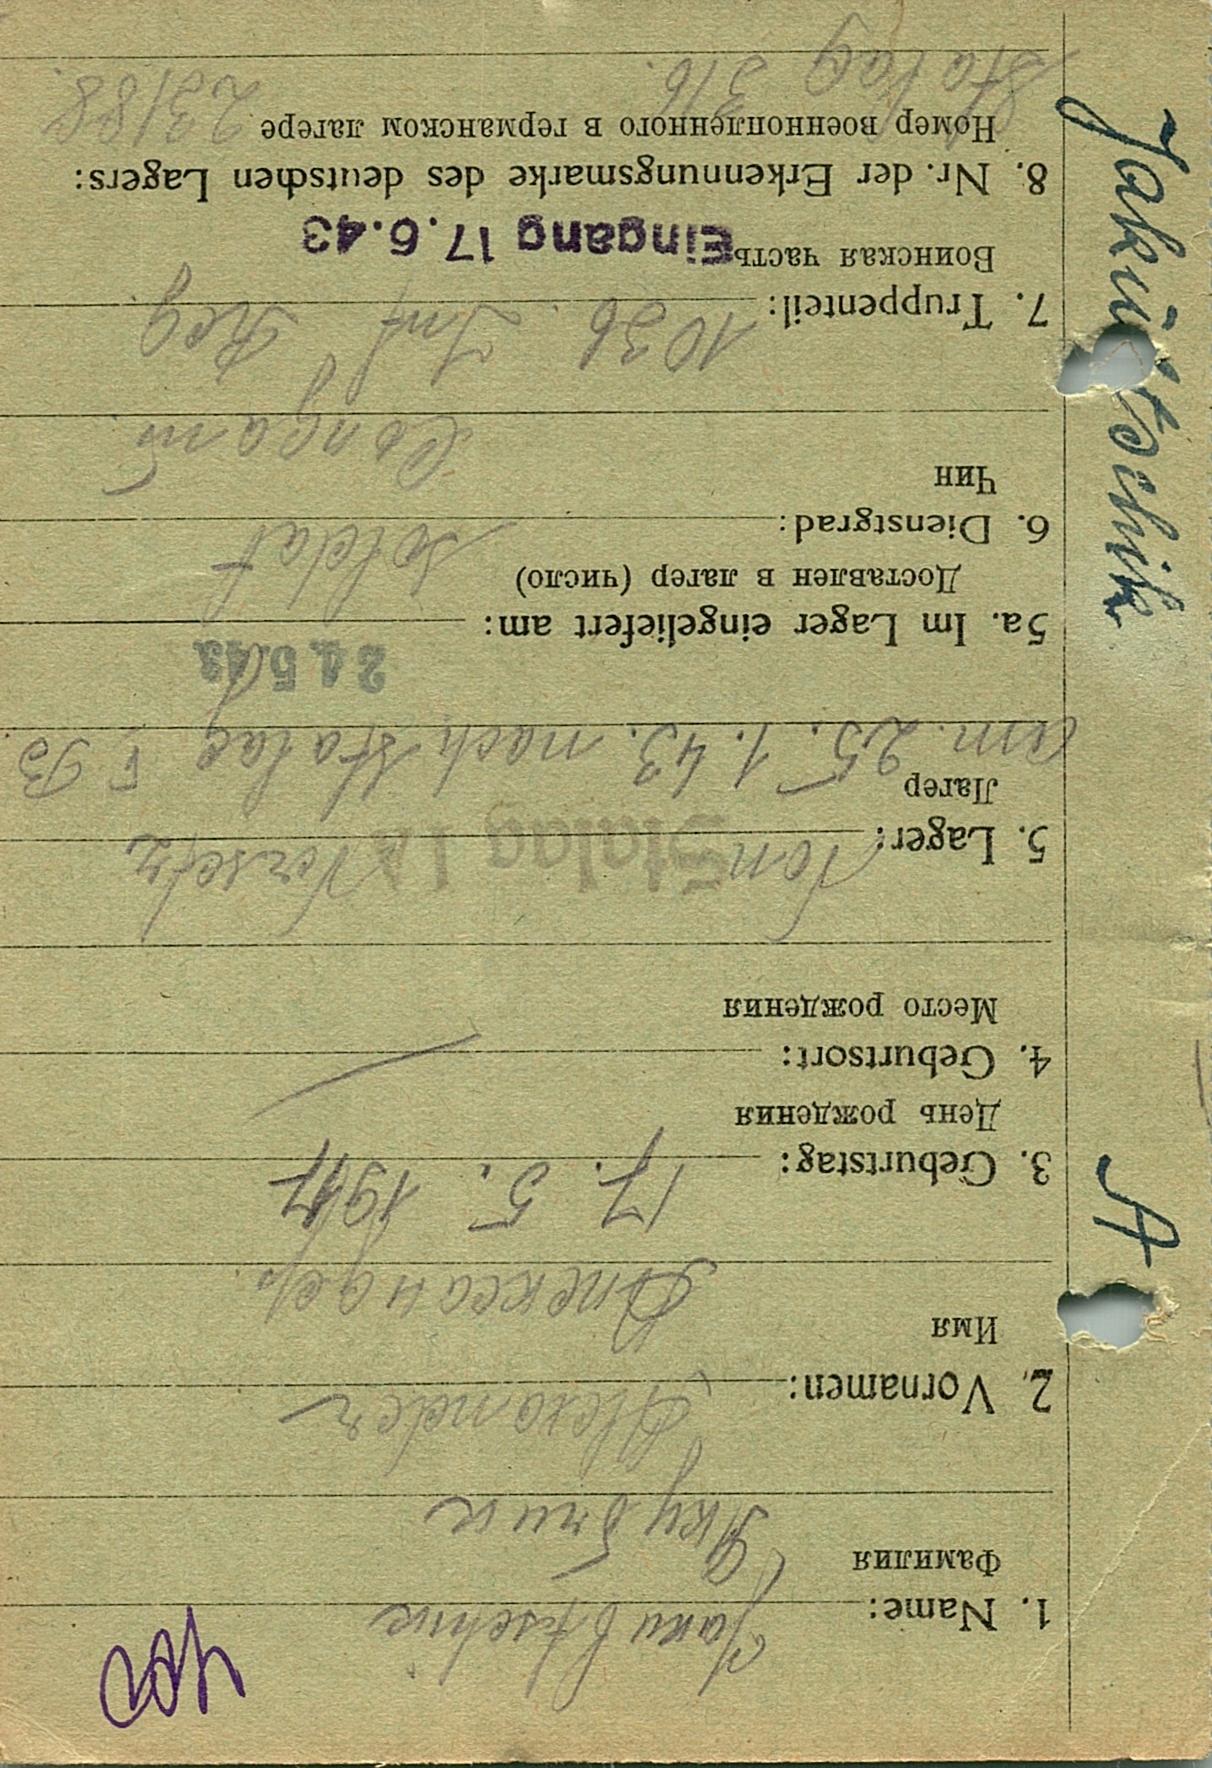 1. Name: Jakubtschik
Фамилия
Якубчик
2. Vornamen: Alexander
Имя
Александер
3. Geburtstag: 17. 5. 1917
День рождения
4. Geburtsort:
Место рождения
5. Lager: Von Versetz
Stalag I A
Лагер
am. 25. 1. 43. nach Stalag V B
21.5.43
5a. Im Lager eingeliefert am:
Доставлен в лагер (число)
6. Dienstgrad: Soldat
Чин
Солдат
7. Truppenteil: 1036. Inf Reg.
Воинская часть
Eingang 17.6.43
8. Nr. der Erkennungsmarke des deutschen Lagers:
Номер военнопленного в германском лагере
Stalag 316. 23188.
A Jakubtschik